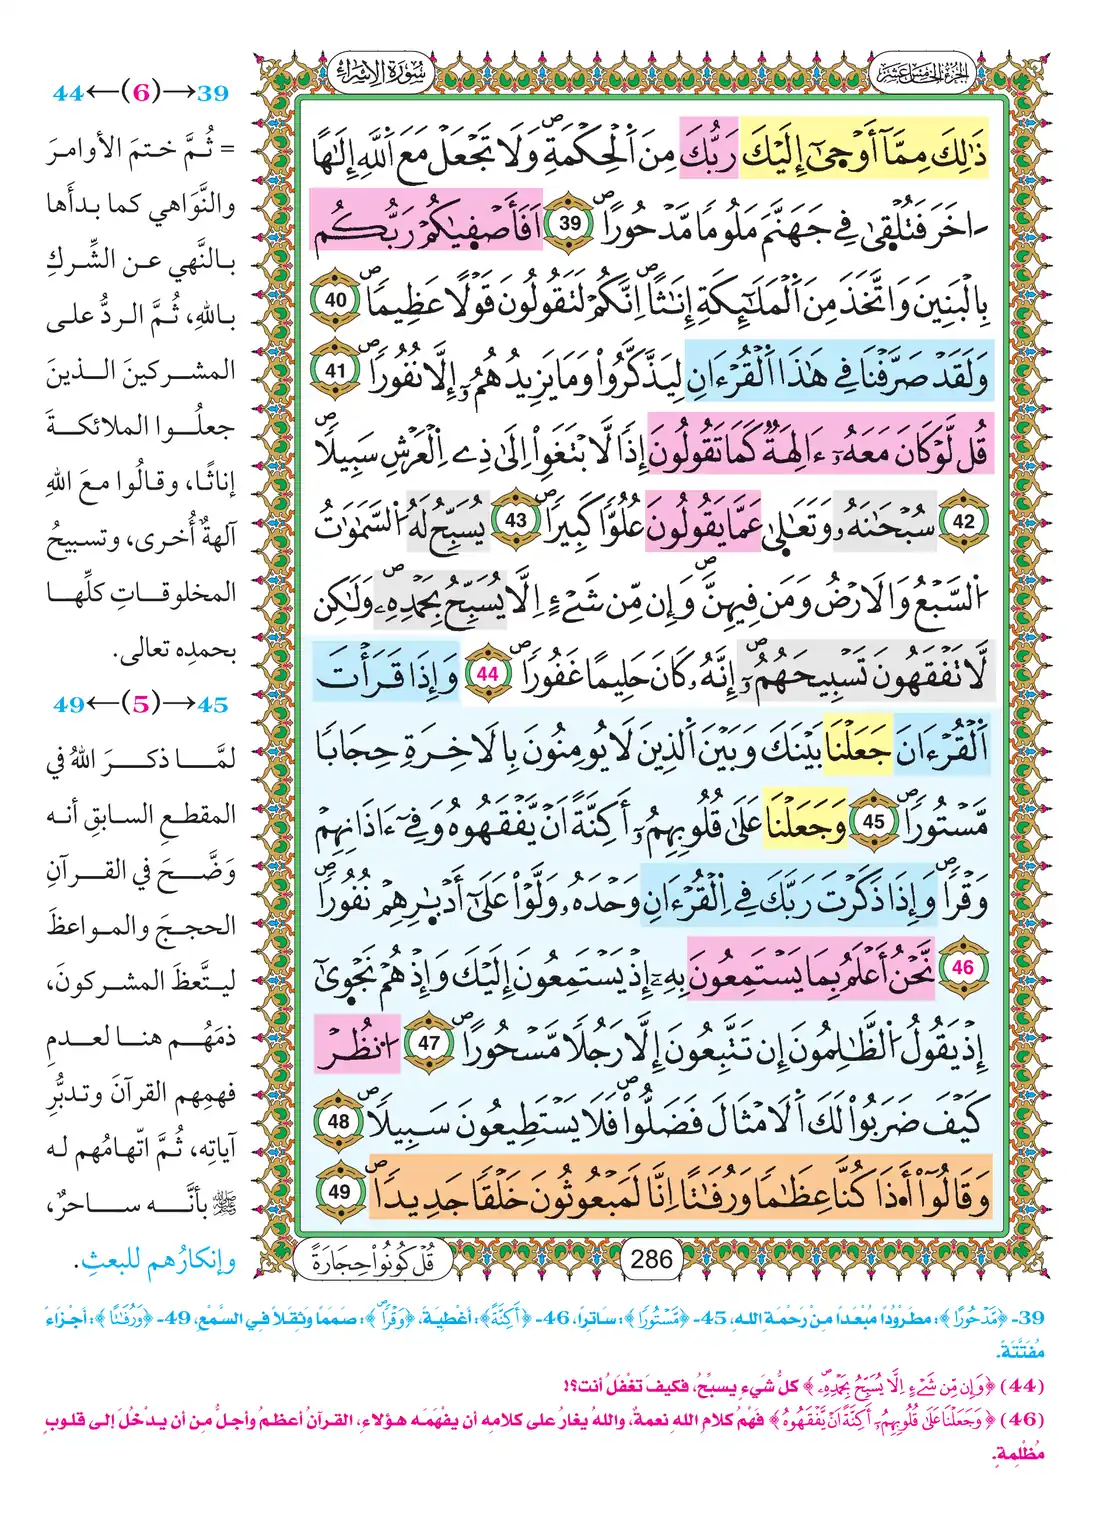 الجزء الخامس عشر
سورة الإسراء
ذَٰلِكَ مِمَّا أَوْحَىٰ إِلَيْكَ رَبُّكَ مِنَ اَلْحِكْمَةِ وَلَا تَجْعَلْ مَعَ اَللَّهِ إِلَٰهًا
ـاخَرَ فَتُلْقَىٰ فِي جَهَنَّمَ مَلُومًا مَّدْحُورًا 39 اَفَأَصْفَيٰكُمْ رَبُّكُم
بِالْبَنِينَ وَاتَّخَذَ مِنَ اَلْمَلَٰٓئِكَةِ إِنَٰثًا اِنَّكُمْ لَتَقُولُونَ قَوْلًا عَظِيمًا 40
وَلَقَد صَّرَّفْنَا فِي هَٰذَا اَلْقُرْءَانِ لِيَذَّكَّرُواْ وَمَا يَزِيدُهُمُۥٓ إِلَّا نُفُورًا 41
قُل لَّوْ كَانَ مَعَهُۥٓ ءَالِهَةٌ كَمَا تَقُولُونَ إِذًا لَّابْتَغَوِاْ اِلَىٰ ذِے اِلْعَرْشِ سَبِيلًا
42 سُبْحَٰنَهُۥ وَتَعَٰلَىٰ عَمَّا يَقُولُونَ عُلُوًّا كَبِيرًا 43 يُسَبِّحُ لَهُ اُلسَّمَٰوَٰتُ
اُلسَّبْعُ وَالَارْضُ وَمَن فِيهِنَّ وَإِن مِّن شَےْءٍ اِلَّا يُسَبِّحُ بِحَمْدِهِۦ وَلَٰكِن
لَّا تَفْقَهُونَ تَسْبِيحَهُمُۥٓ إِنَّهُۥ كَانَ حَلِيمًا غَفُورًا 44 وَإِذَا قَرَأْتَ
اَلْقُرْءَانَ جَعَلْنَا بَيْنَكَ وَبَيْنَ اَلذِينَ لَا يُومِنُونَ بِالَاخِرَةِ حِجَابًا
مَّسْتُورًا 45 وَجَعَلْنَا عَلَىٰ قُلُوبِهِمُۥٓ أَكِنَّةً اَنْ يَّفْقَهُوهُ وَفِےٓ ءَاذَانِهِمْ
وَقْرًا وَإِذَا ذَكَرْتَ رَبَّكَ فِے اِلْقُرْءَانِ وَحْدَهُۥ وَلَّوْاْ عَلَىٰٓ أَدْبَٰرِهِمْ نُفُورًا
46 نَّحْنُ أَعْلَمُ بِمَا يَسْتَمِعُونَ بِهِۦٓ إِذْ يَسْتَمِعُونَ إِلَيْكَ وَإِذْ هُمْ نَجْوَىٰٓ
إِذْ يَقُولُ اُلظَّٰلِمُونَ إِن تَتَّبِعُونَ إِلَّا رَجُلًا مَّسْحُورًا 47 اُنظُرْ
كَيْفَ ضَرَبُواْ لَكَ اَلَامْثَالَ فَضَلُّواْ فَلَا يَسْتَطِيعُونَ سَبِيلًا 48
وَقَالُوٓاْ أَ.ذَا كُنَّا عِظَٰمًا وَرُفَٰتًا اِنَّا لَمَبْعُوثُونَ خَلْقًا جَدِيدًا 49
286
قُلْ كُونُواْ حِجَارَةً
39→(6)←44
= ثُمَّ ختمَ الأوامرَ
والنَّوَاهي كما بدأَها
بالنَّهي عن الشِّركِ
باللهِ، ثُمَّ الردُّ على
المشركينَ الذينَ
جعلُوا الملائكةَ
إناثًا، وقالُوا معَ اللهِ
آلهةٌ أُخرى، وتسبيحُ
المخلوقاتِ كلِّها
بحمدِه تعالى.
45→(5)←49
لمَّا ذكرَ اللهُ في
المقطعِ السابقِ أنه
وَضَّحَ في القرآنِ
الحججَ والمواعظَ
ليتَّعظَ المشركونَ،
ذمَهُم هنا لعدمِ
فهمِهم القرآنَ وتدبُّرِ
آياتِه، ثُمَّ اتّهامُهم له
ﷺ بأنَّه ساحرٌ،
وإنكارُهم للبعثِ.
39- ﴿مَّدْحُورًا﴾: مطرُودًا مبْعَداً منْ رَحْمَةِ اللهِ، 45- ﴿مَّسْتُورًا﴾: ساتراً، 46- ﴿أَكِنَّةً﴾: أغْطيةً، ﴿وَقْرًا﴾: صَمَماً وَثقَلاً في السَّمْعِ، 49- ﴿وَرُفَٰتًا﴾: أجْزَاءً
مُفَتَّتَةً.
(44) ﴿وَإِن مِّن شَےْءٍ اِلَّا يُسَبِّحُ بِحَمْدِهِۦ﴾ كلُّ شَيءٍ يسبِّحُ، فكيفَ تغْفَلُ أنت؟!
(46) ﴿وَجَعَلْنَا عَلَىٰ قُلُوبِهِمُۥٓ أَكِنَّةً اَنْ يَّفْقَهُوهُ﴾ فَهْمُ كلامِ اللهِ نعمةٌ، واللهُ يغارُ على كلامِه أن يفْهَمَه هؤلاءِ، القرآنُ أعظمُ وأجلُّ من أن يدْخُلَ إلى قلوبٍ
مُظْلِمةٍ.